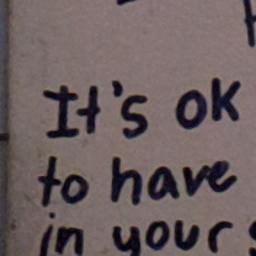 It's ok
to have
in your